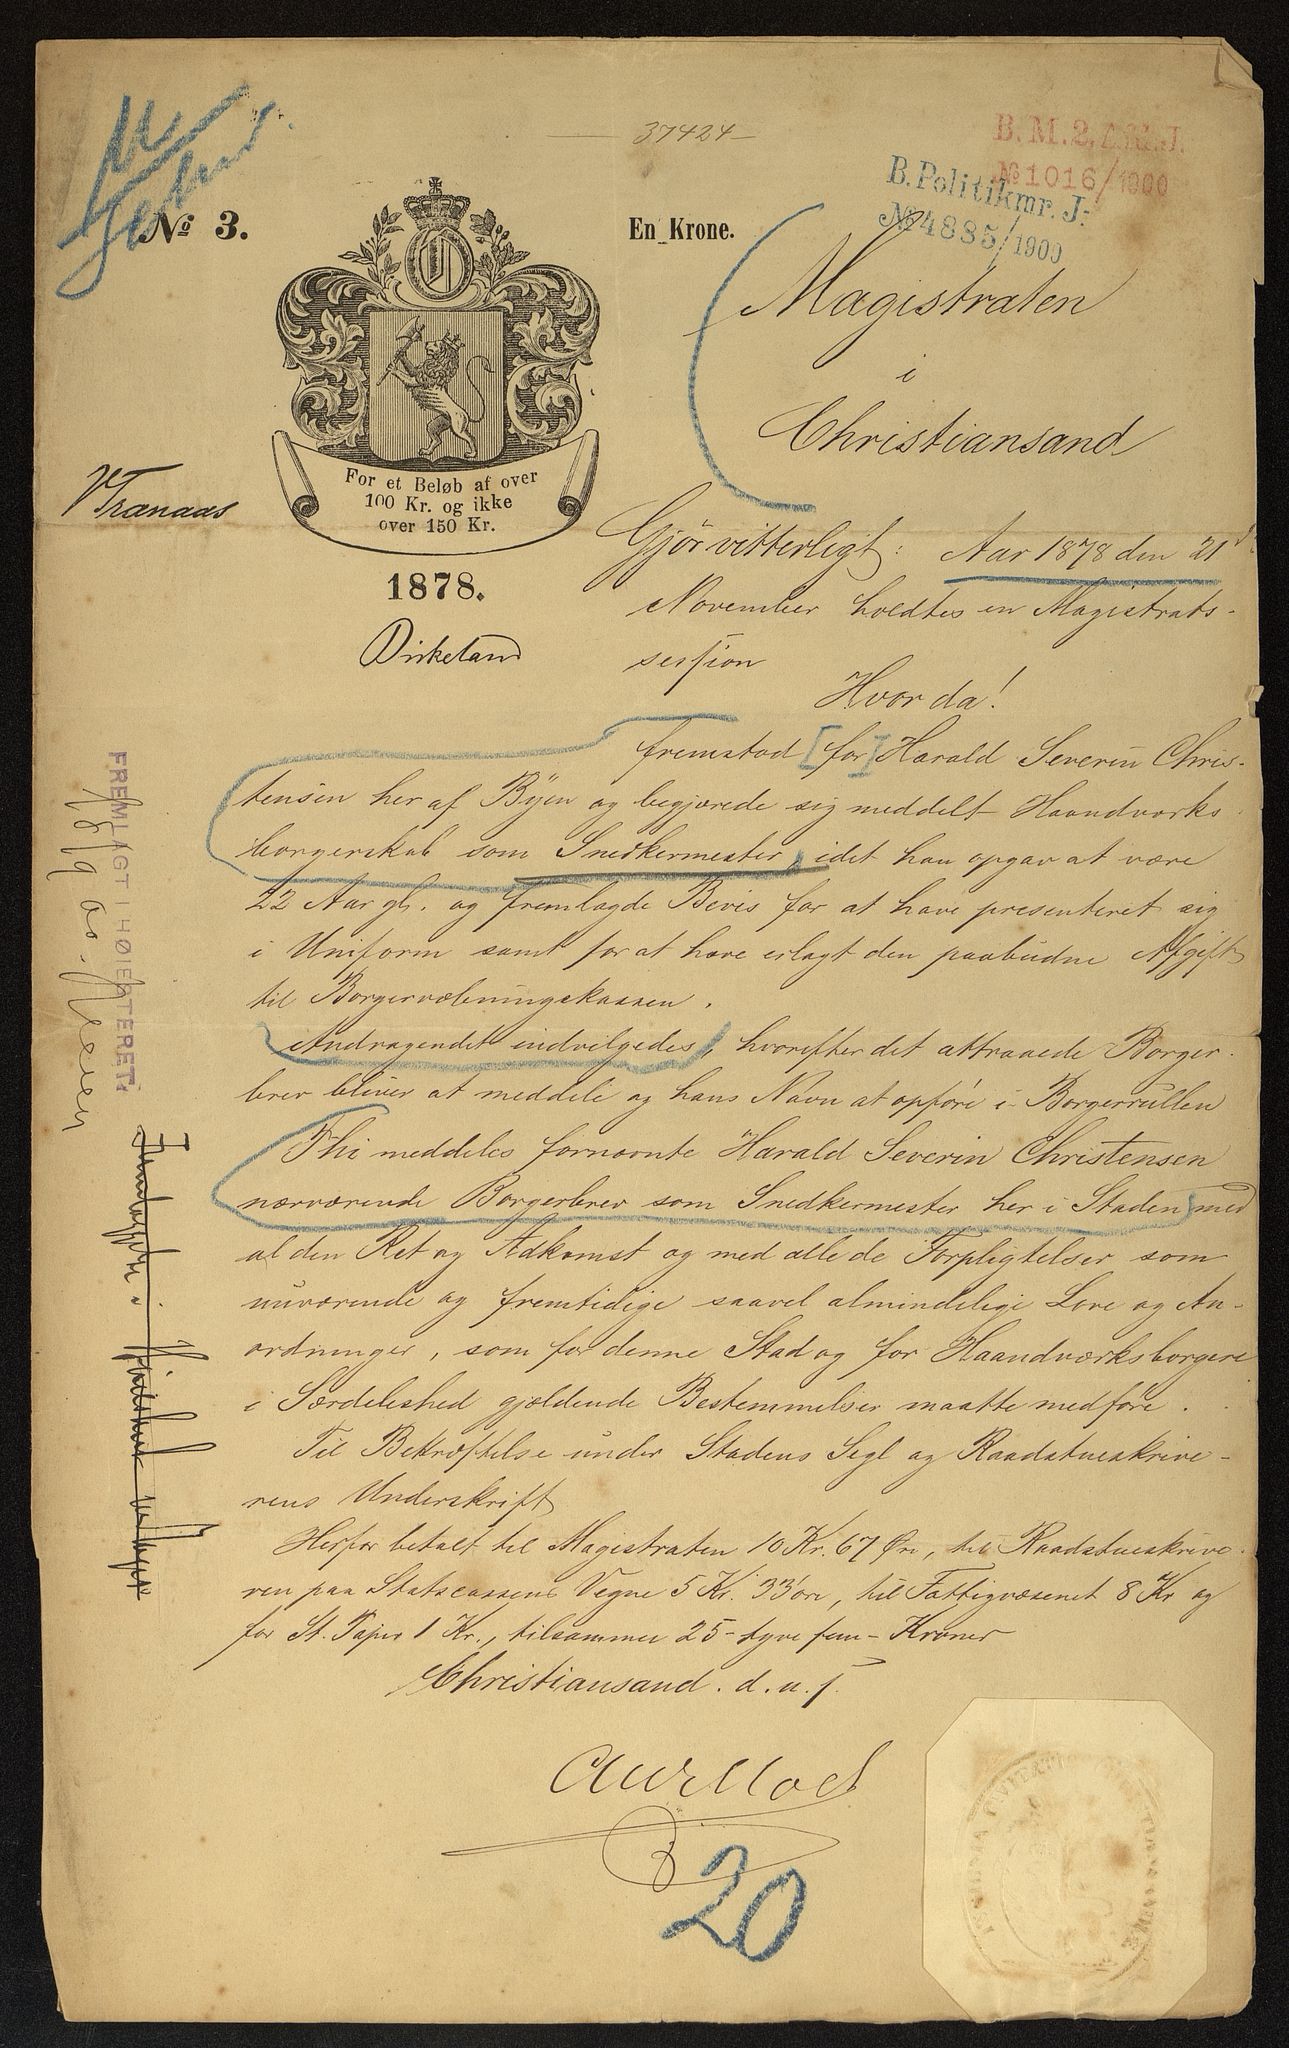 37424
B. M. 2. J.
№ 1016/1900
B. Politikmr. J:
№ 4885/1900
№ 3.
En Krone.
For et Beløb af over
100 Kr. og ikke
over 150 Kr.
1878.
VTranaas
Birkeland
Magistraten
i
Christiansand
Gjör vitterligt: Aar 1878 den 21d
November holdtes en Magistrats-
session
Hvor da!
fremstod [for] Harald Severin Chris-
tensen her af Byen og begjærede sig meddelt Haandværks
borgerskab som Snedkermester, idet han opgav at være
22 Aar gl. og fremlagde Bevis for at have presenteret sig
i Uniform samt for at have erlagt den paabudne Afgift
til Borgervæbningskassen.
Andragendet indvilgedes, hvorefter det attraaede Borger-
brev bliver at meddele og hans Navn at opföre i Borgerrullen
Thi meddeles fornævnte Harald Severin Christensen
nærværende Borgerbrev som Snedkermester her i Staden med
al den Ret og Adkomst og med alle de Forpligtelser som
nuværende og fremtidige saavel almindelige Love og An-
ordninger, som for denne Stad og for Haandværksborgere
i Særdeleshed gjældende Bestemmelser maatte medföre.
Til Bekræftelse under Stadens Segl og Raadstueskrive-
rens Underskrift
Herfor betalt til Magistraten 10 Kr. 67 Øre, til Raadstueskrive-
ren paa Statscassens Vegne 5 Kr. 33 öre, til Fattigvæsenet 8 Kr og
for St. Papir 1 Kr., tilsammen 25 - tyve fem - Kroner
Christiansand. d. u. s.
20
FREMLAGT I HØIESTERET: